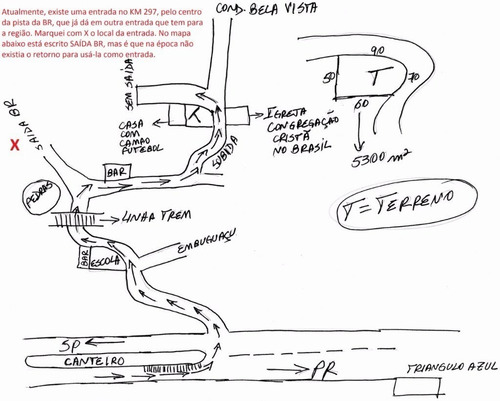 Atualmente, existe uma entrada no KM 297, pelo centro
da pista da BR, que já dá em outra entrada que tem para
a região. Marquei com X o local da entrada. No mapa
abaixo está escrito SAÍDA BR, mas é que na época não
existia o retorno para usá-la como entrada.
COND. BELA VISTA
SEM SAÍDA
90
50
T
70
60
5300 m²
T
CASA
COM
CAMPO
FUTEBOL
IGREJA
CONGREGAÇÃO
CRISTÃ
NO BRASIL
SAÍDA BR
X
BAR
SUBIDA
PEDRAS
T = TERRENO
LINHA TREM
EMBUGUAÇU
BAR
ESCOLA
SP
CANTEIRO
PR
TRIANGULO AZUL